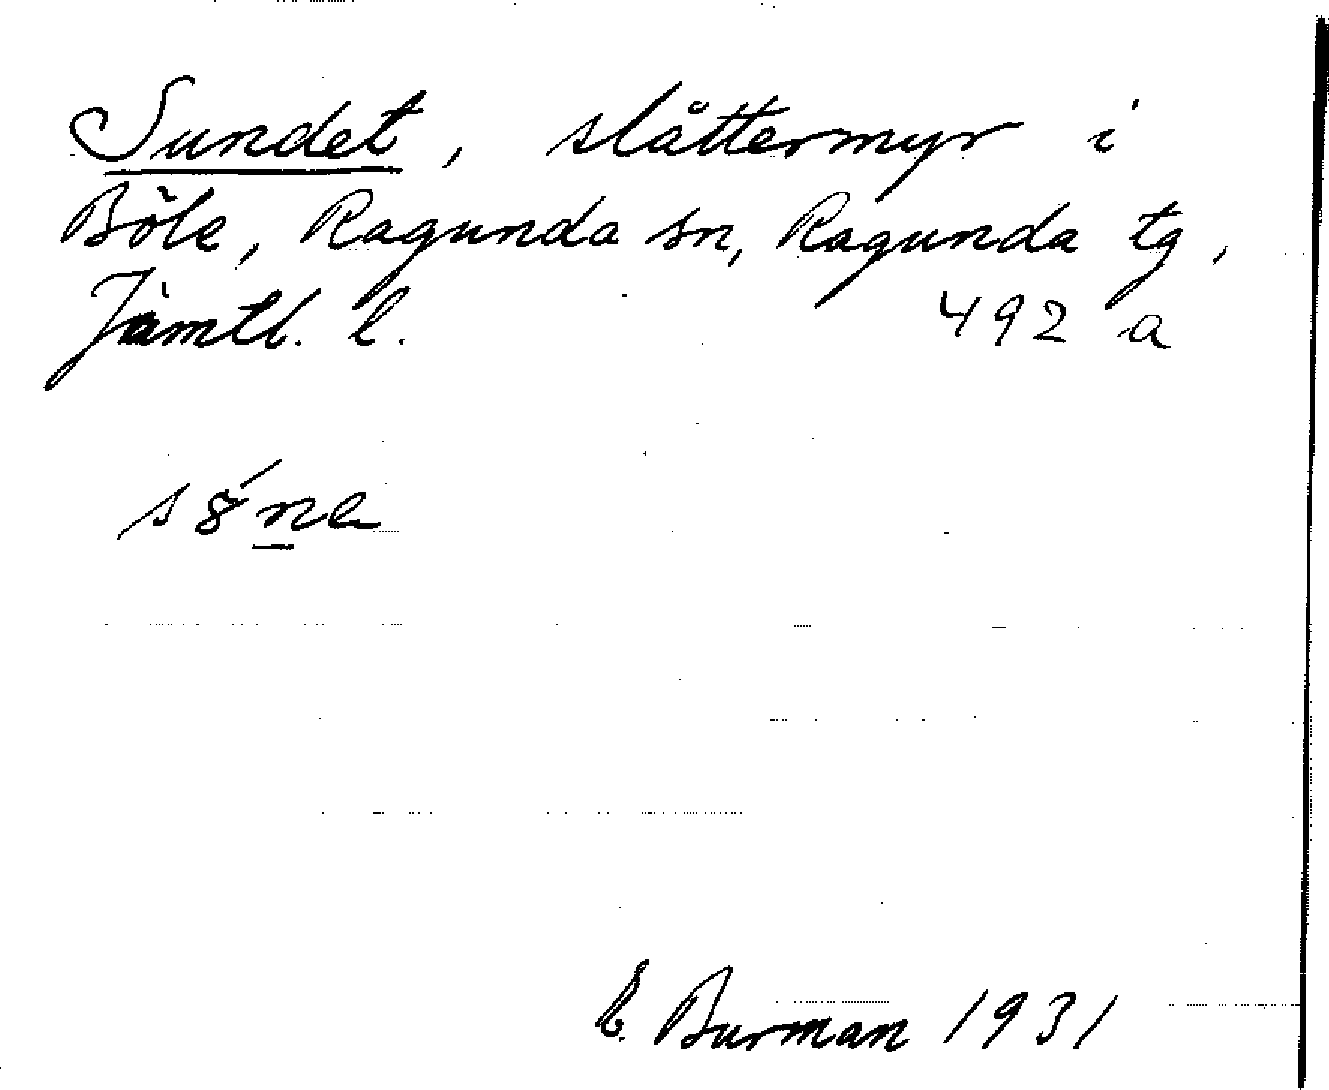 Sundet, slåttermyr i
Böle, Ragunda sn, Ragunda tg,
Jämtl. l. 492 a
E. Burman 1931